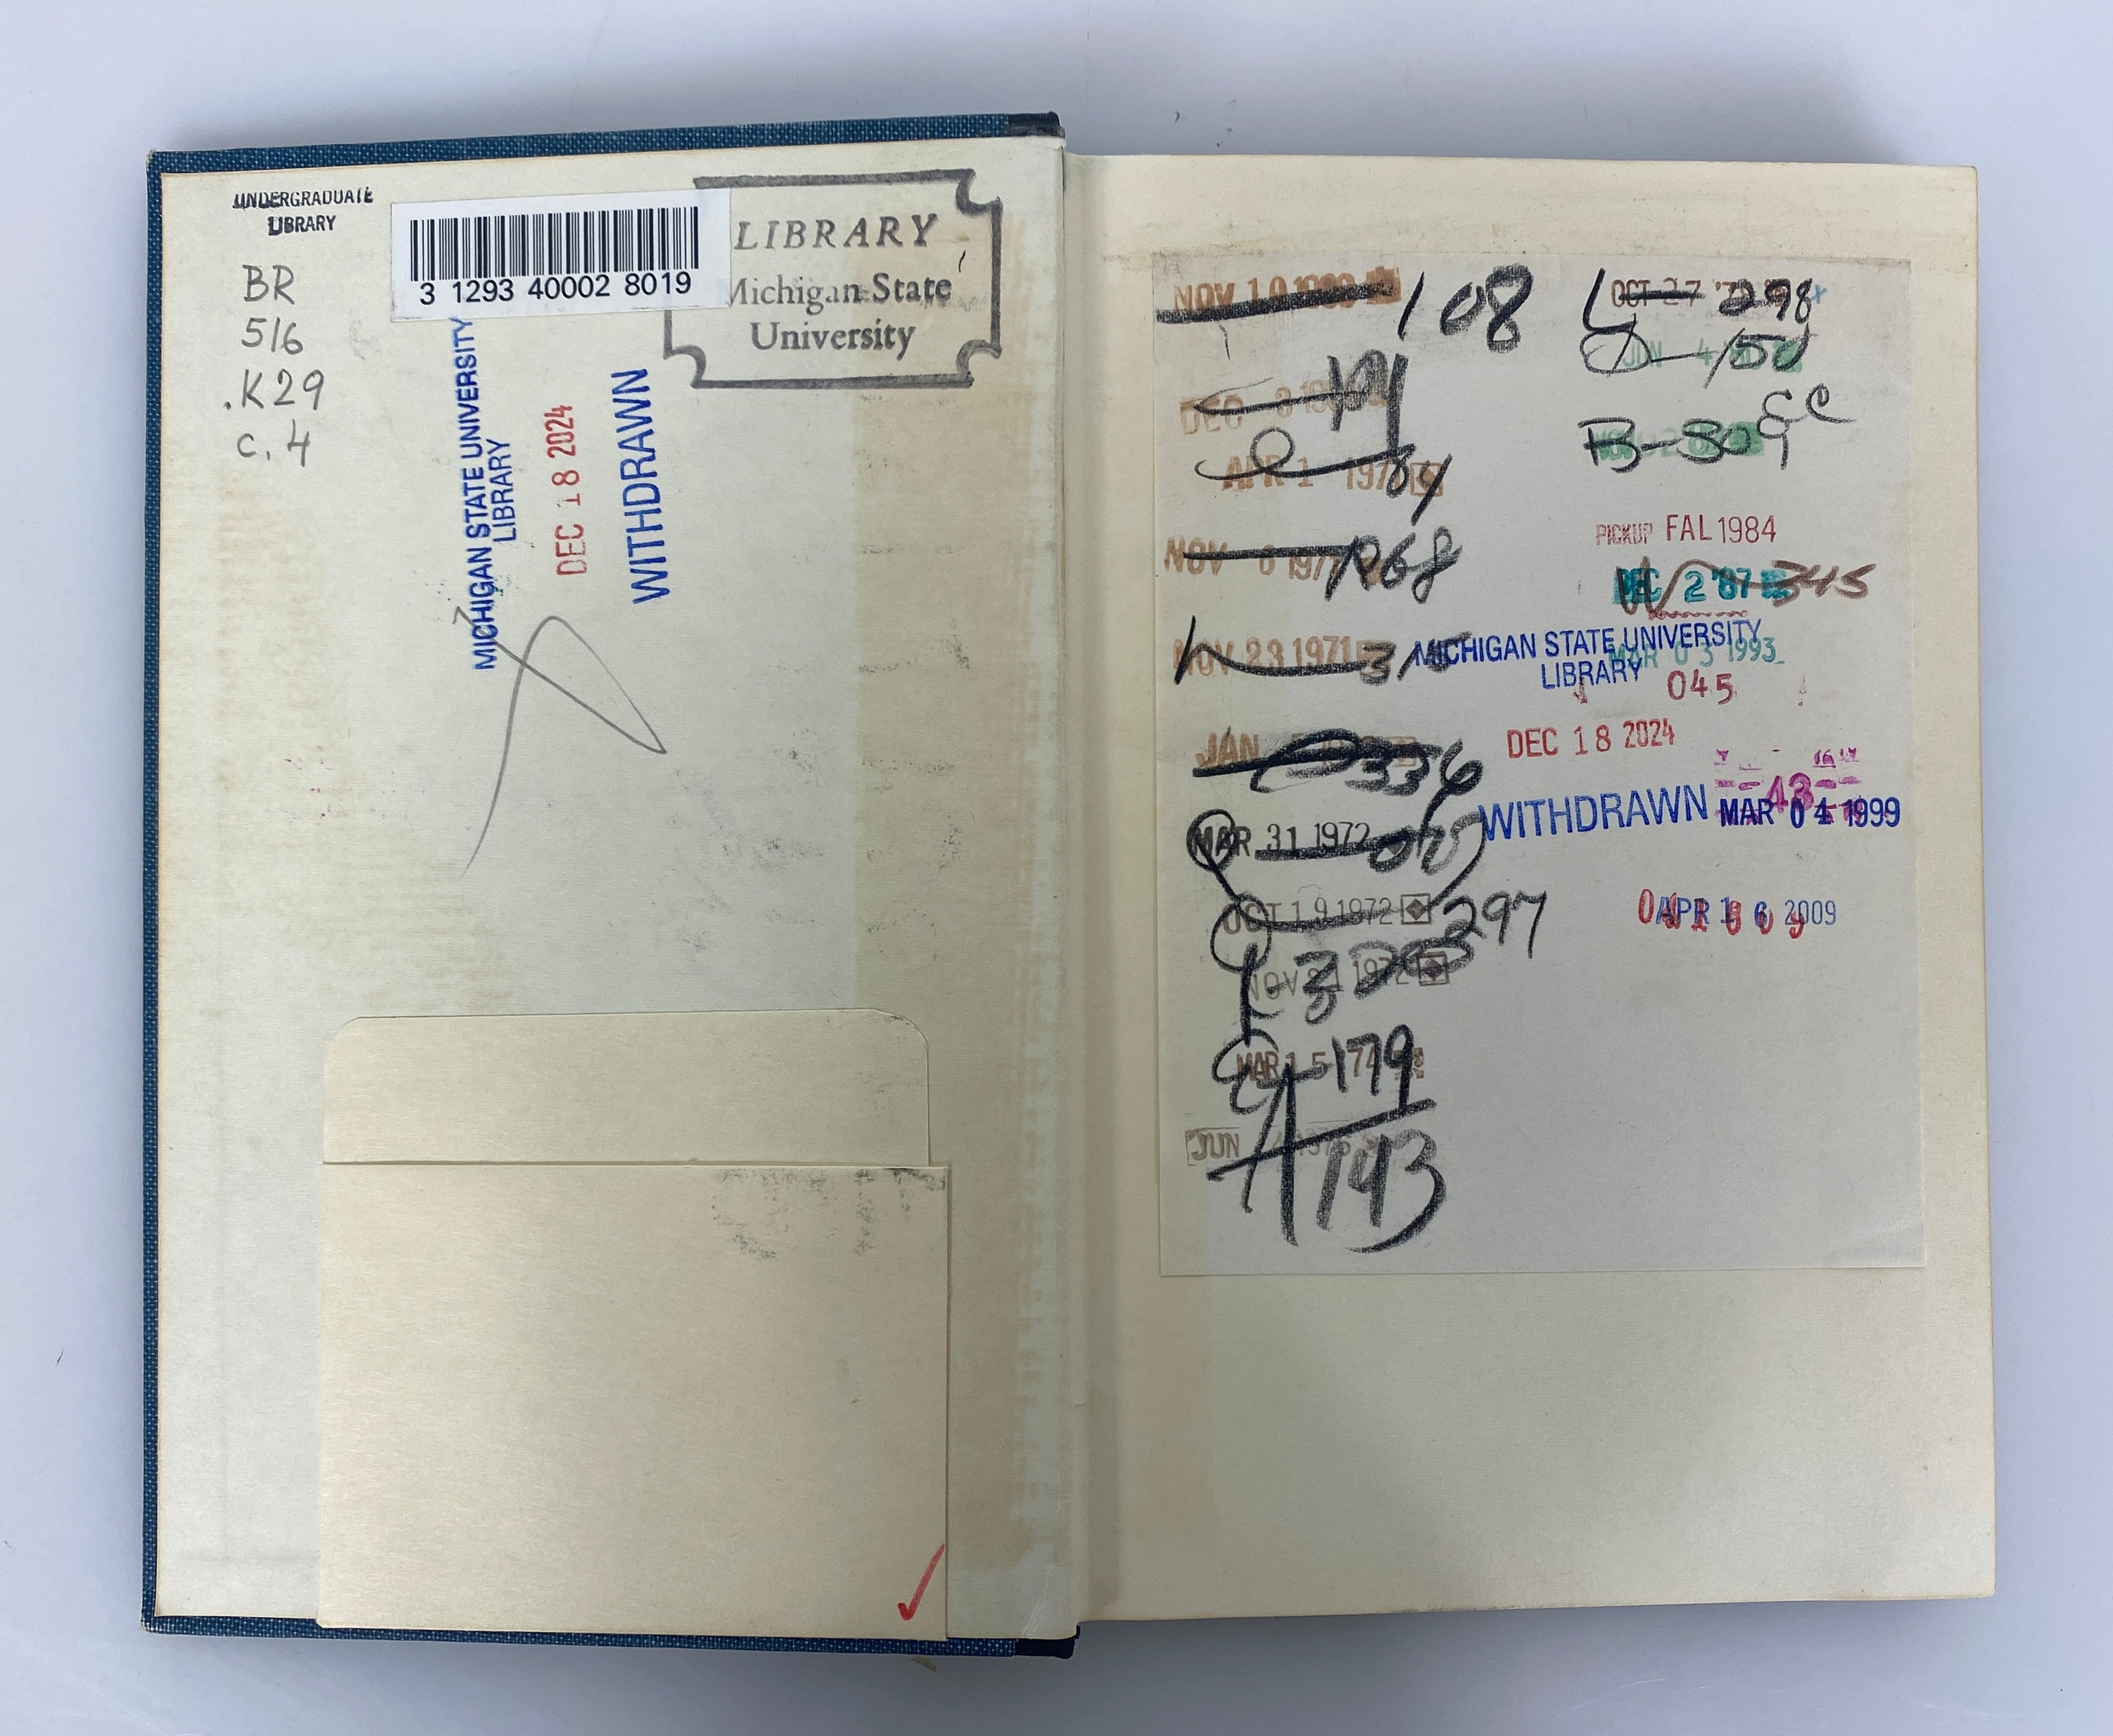 UNDERGRADUATE
LIBRARY
BR
516
.K29
c. 4
3 1293 40002 8019
LIBRARY
Michigan State
University
MICHIGAN STATE UNIVERSITY
LIBRARY
DEC 18 2024
WITHDRAWN
NOV 10
108
DEC
APR 1 197
NOV 6 197
NOV 23 1971
JAN
336
MAR 31 1972
OCT 19 1972
297
NOV 1972
MAR 15
179
JUN
A 143
OCT 27
298
JUN 4
150
B-30
PICKUP FAL 1984
DEC 2 '87
345
MICHIGAN STATE UNIVERSITY
LIBRARY
MAR 03 1993
045
DEC 18 2024
WITHDRAWN
43
MAR 04 1999
APR 16 2009